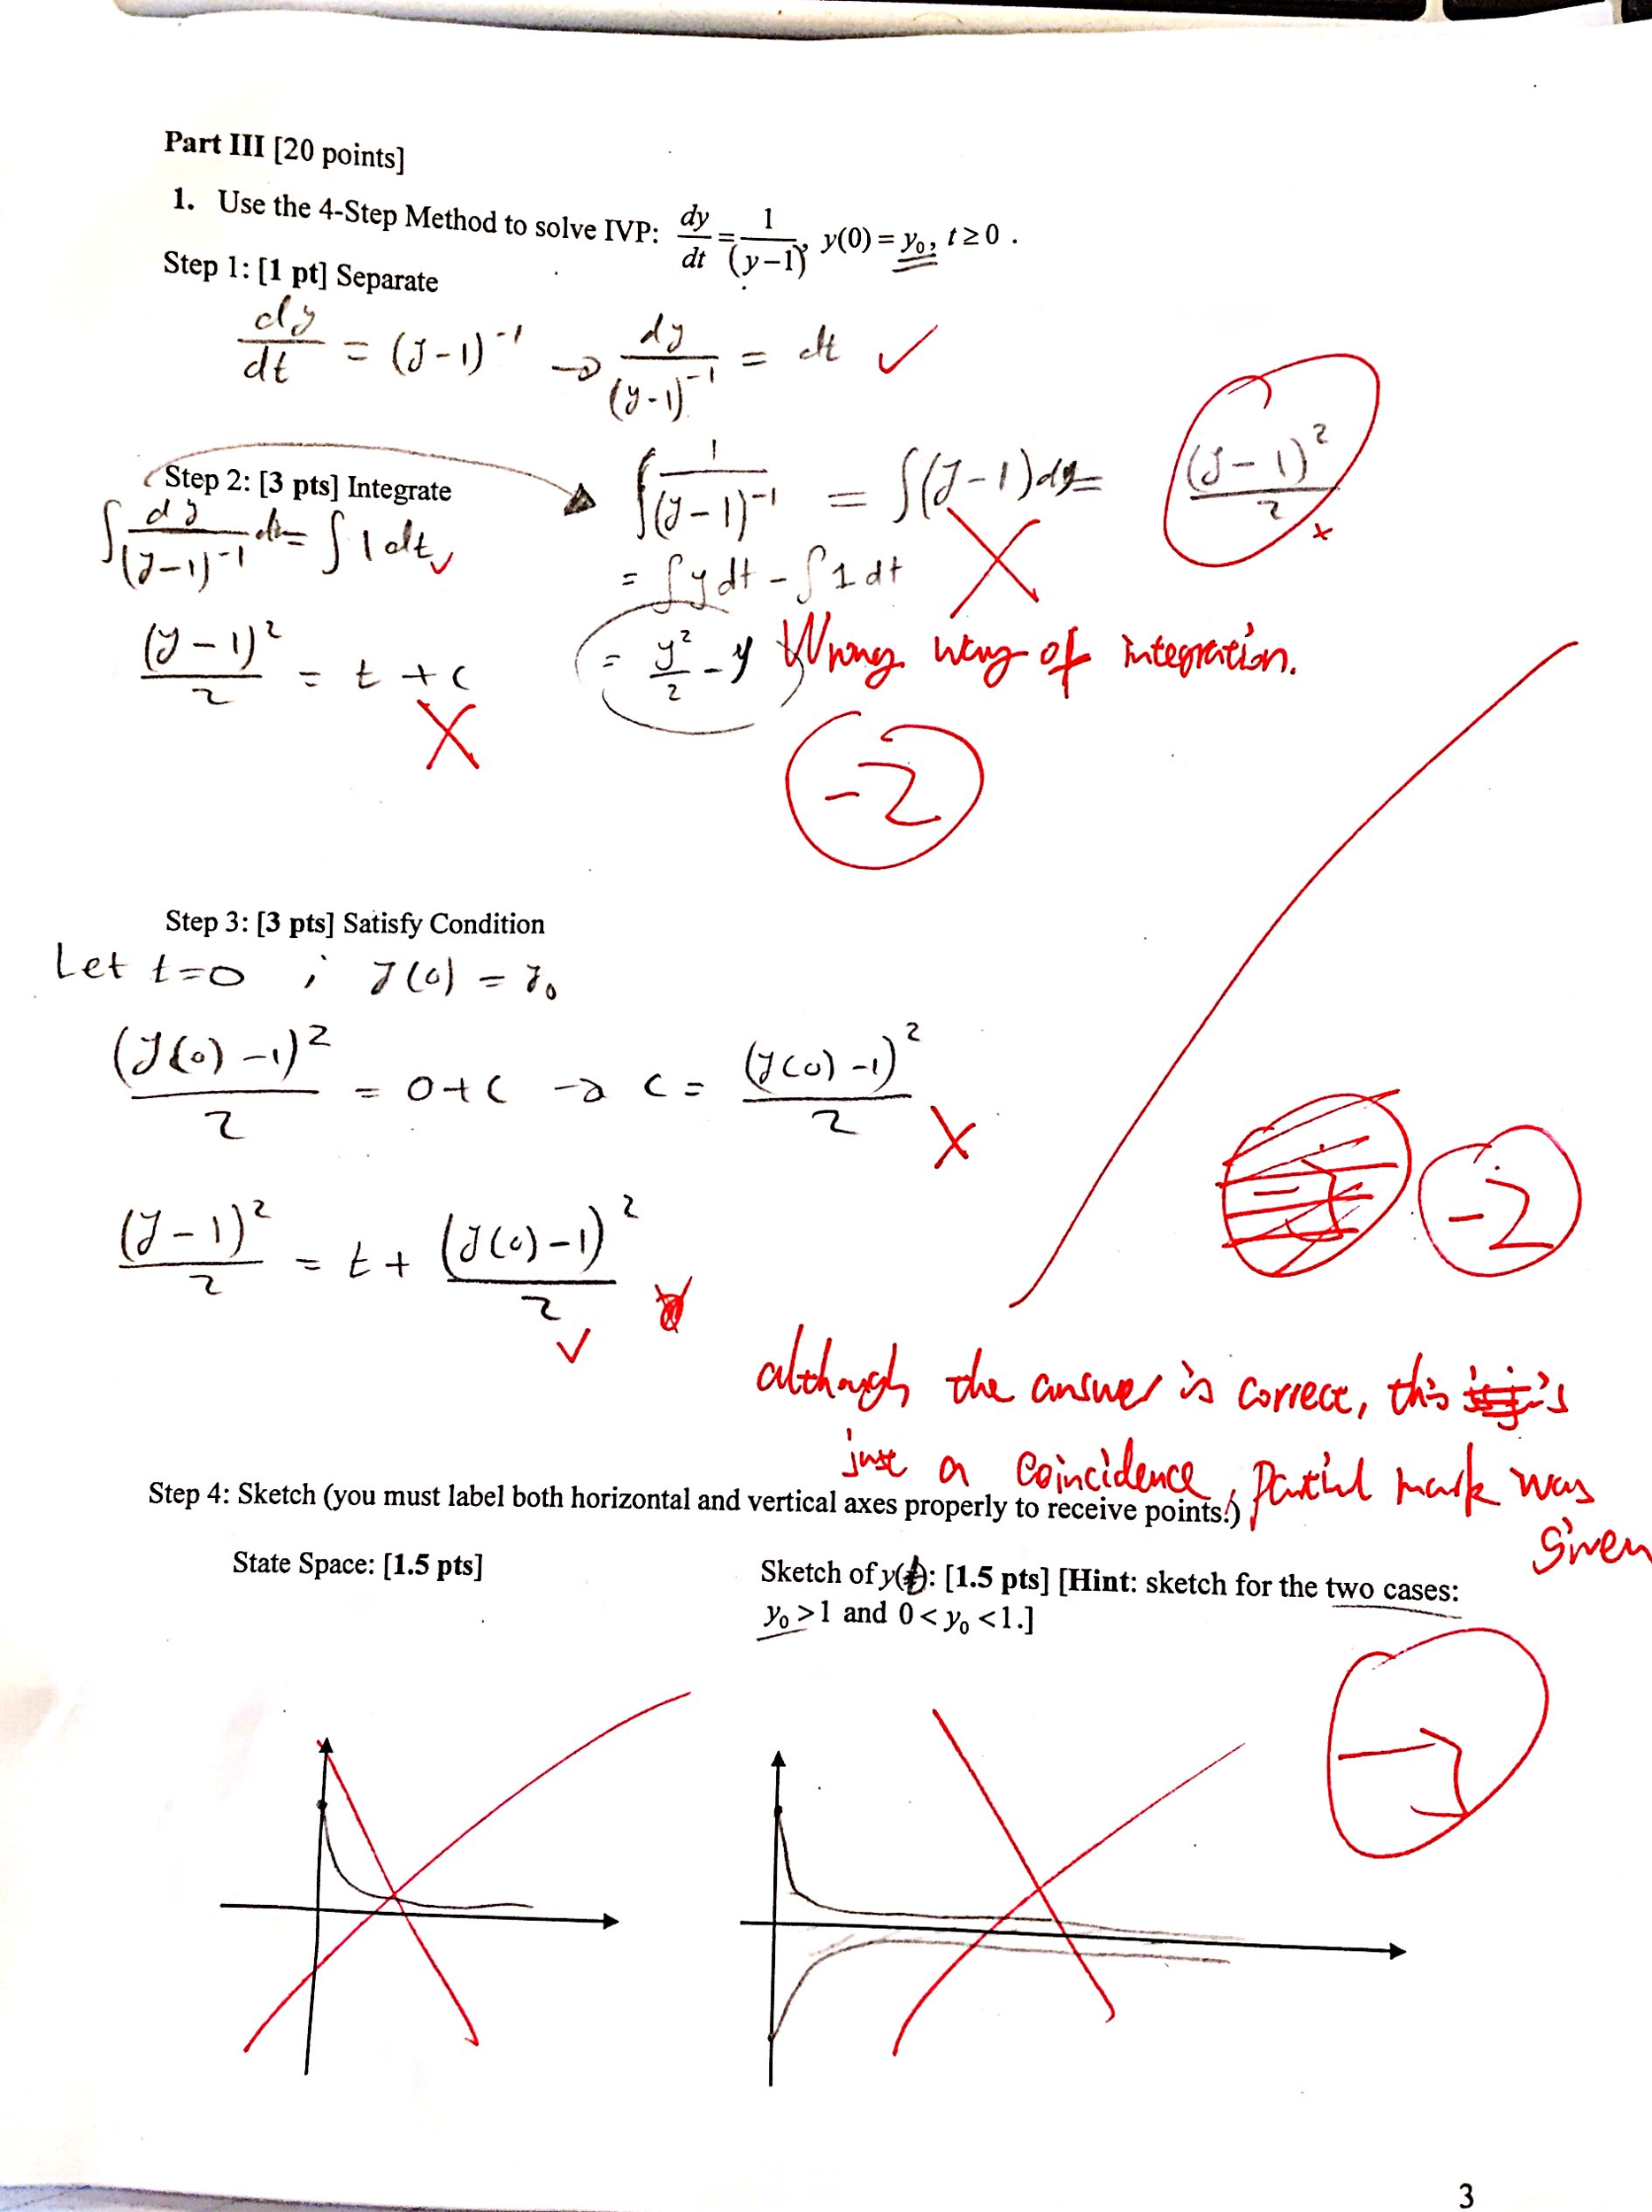 Part III [20 points]
1. Use the 4-Step Method to solve IVP: dy/dt = 1/(y−1), y(0) = y₀, t ≥ 0 .
Step 1: [1 pt] Separate
dy/dt = (y-1)⁻¹ → dy/(y-1)⁻¹ = dt ✓
Step 2: [3 pts] Integrate
∫ dy/(y-1)⁻¹ = ∫ 1 dt ✓
(y-1)²/2 = t + c
X
∫ 1/(y-1)⁻¹ = ∫(y-1)dy = (y-1)²/2
= ∫y dt - ∫1 dt X
= y²/2 - y Wrong way of integration.
-2
Step 3: [3 pts] Satisfy Condition
Let t=0 ; y(0) = y₀
(y(0)-1)²/2 = 0+c → c = (y(0)-1)²/2 X
-2
(y-1)²/2 = t + (y(0)-1)²/2 ✓
although the answer is correct, this is
just a coincidence, partial mark was
given
Step 4: Sketch (you must label both horizontal and vertical axes properly to receive points!)
State Space: [1.5 pts]
Sketch of y(t): [1.5 pts] [Hint: sketch for the two cases:
y₀ >1 and 0< y₀ <1.]
3